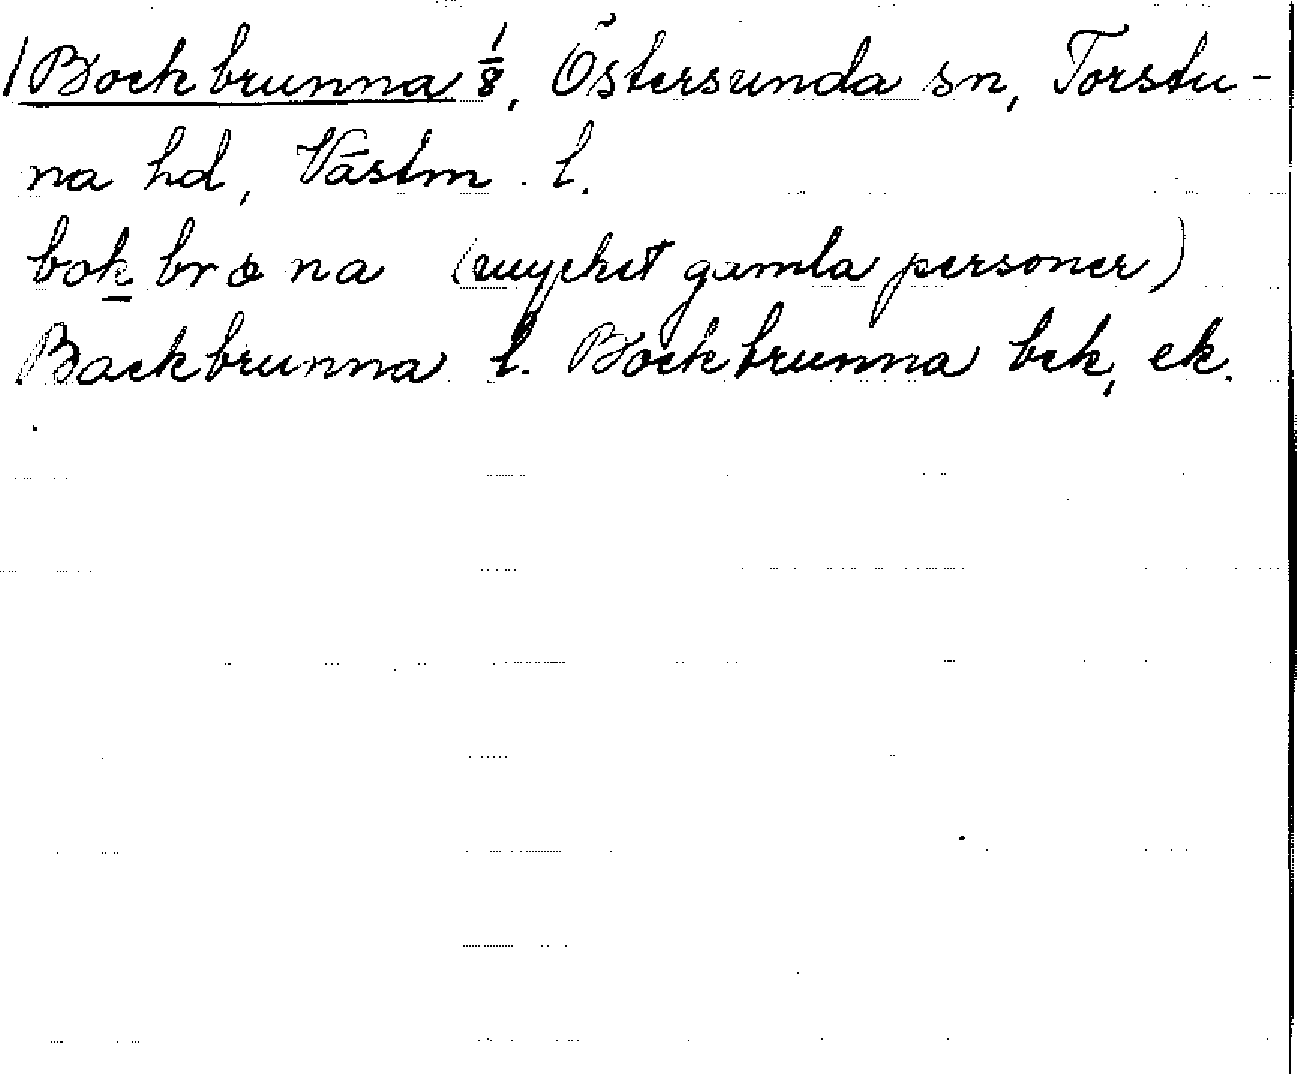 /Bockbrunna 1/8, Östersunda sn, Torstu-
na hd, Västm. l.
bok brona (mycket gamla personer)
Backbrunna l. Bockbrunna bek, ek.